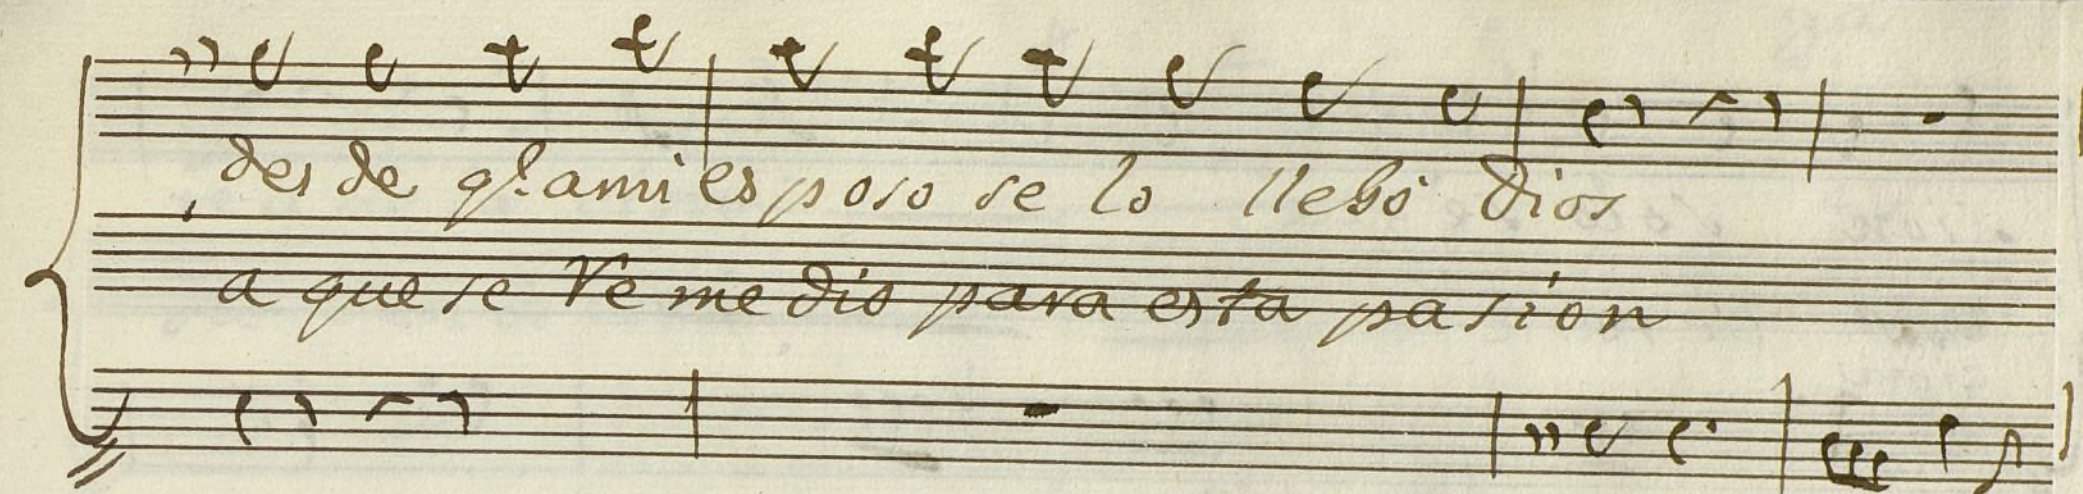 desde qe. a mi esposo se lo llebó Dios
a que se Remedio para esta pasion